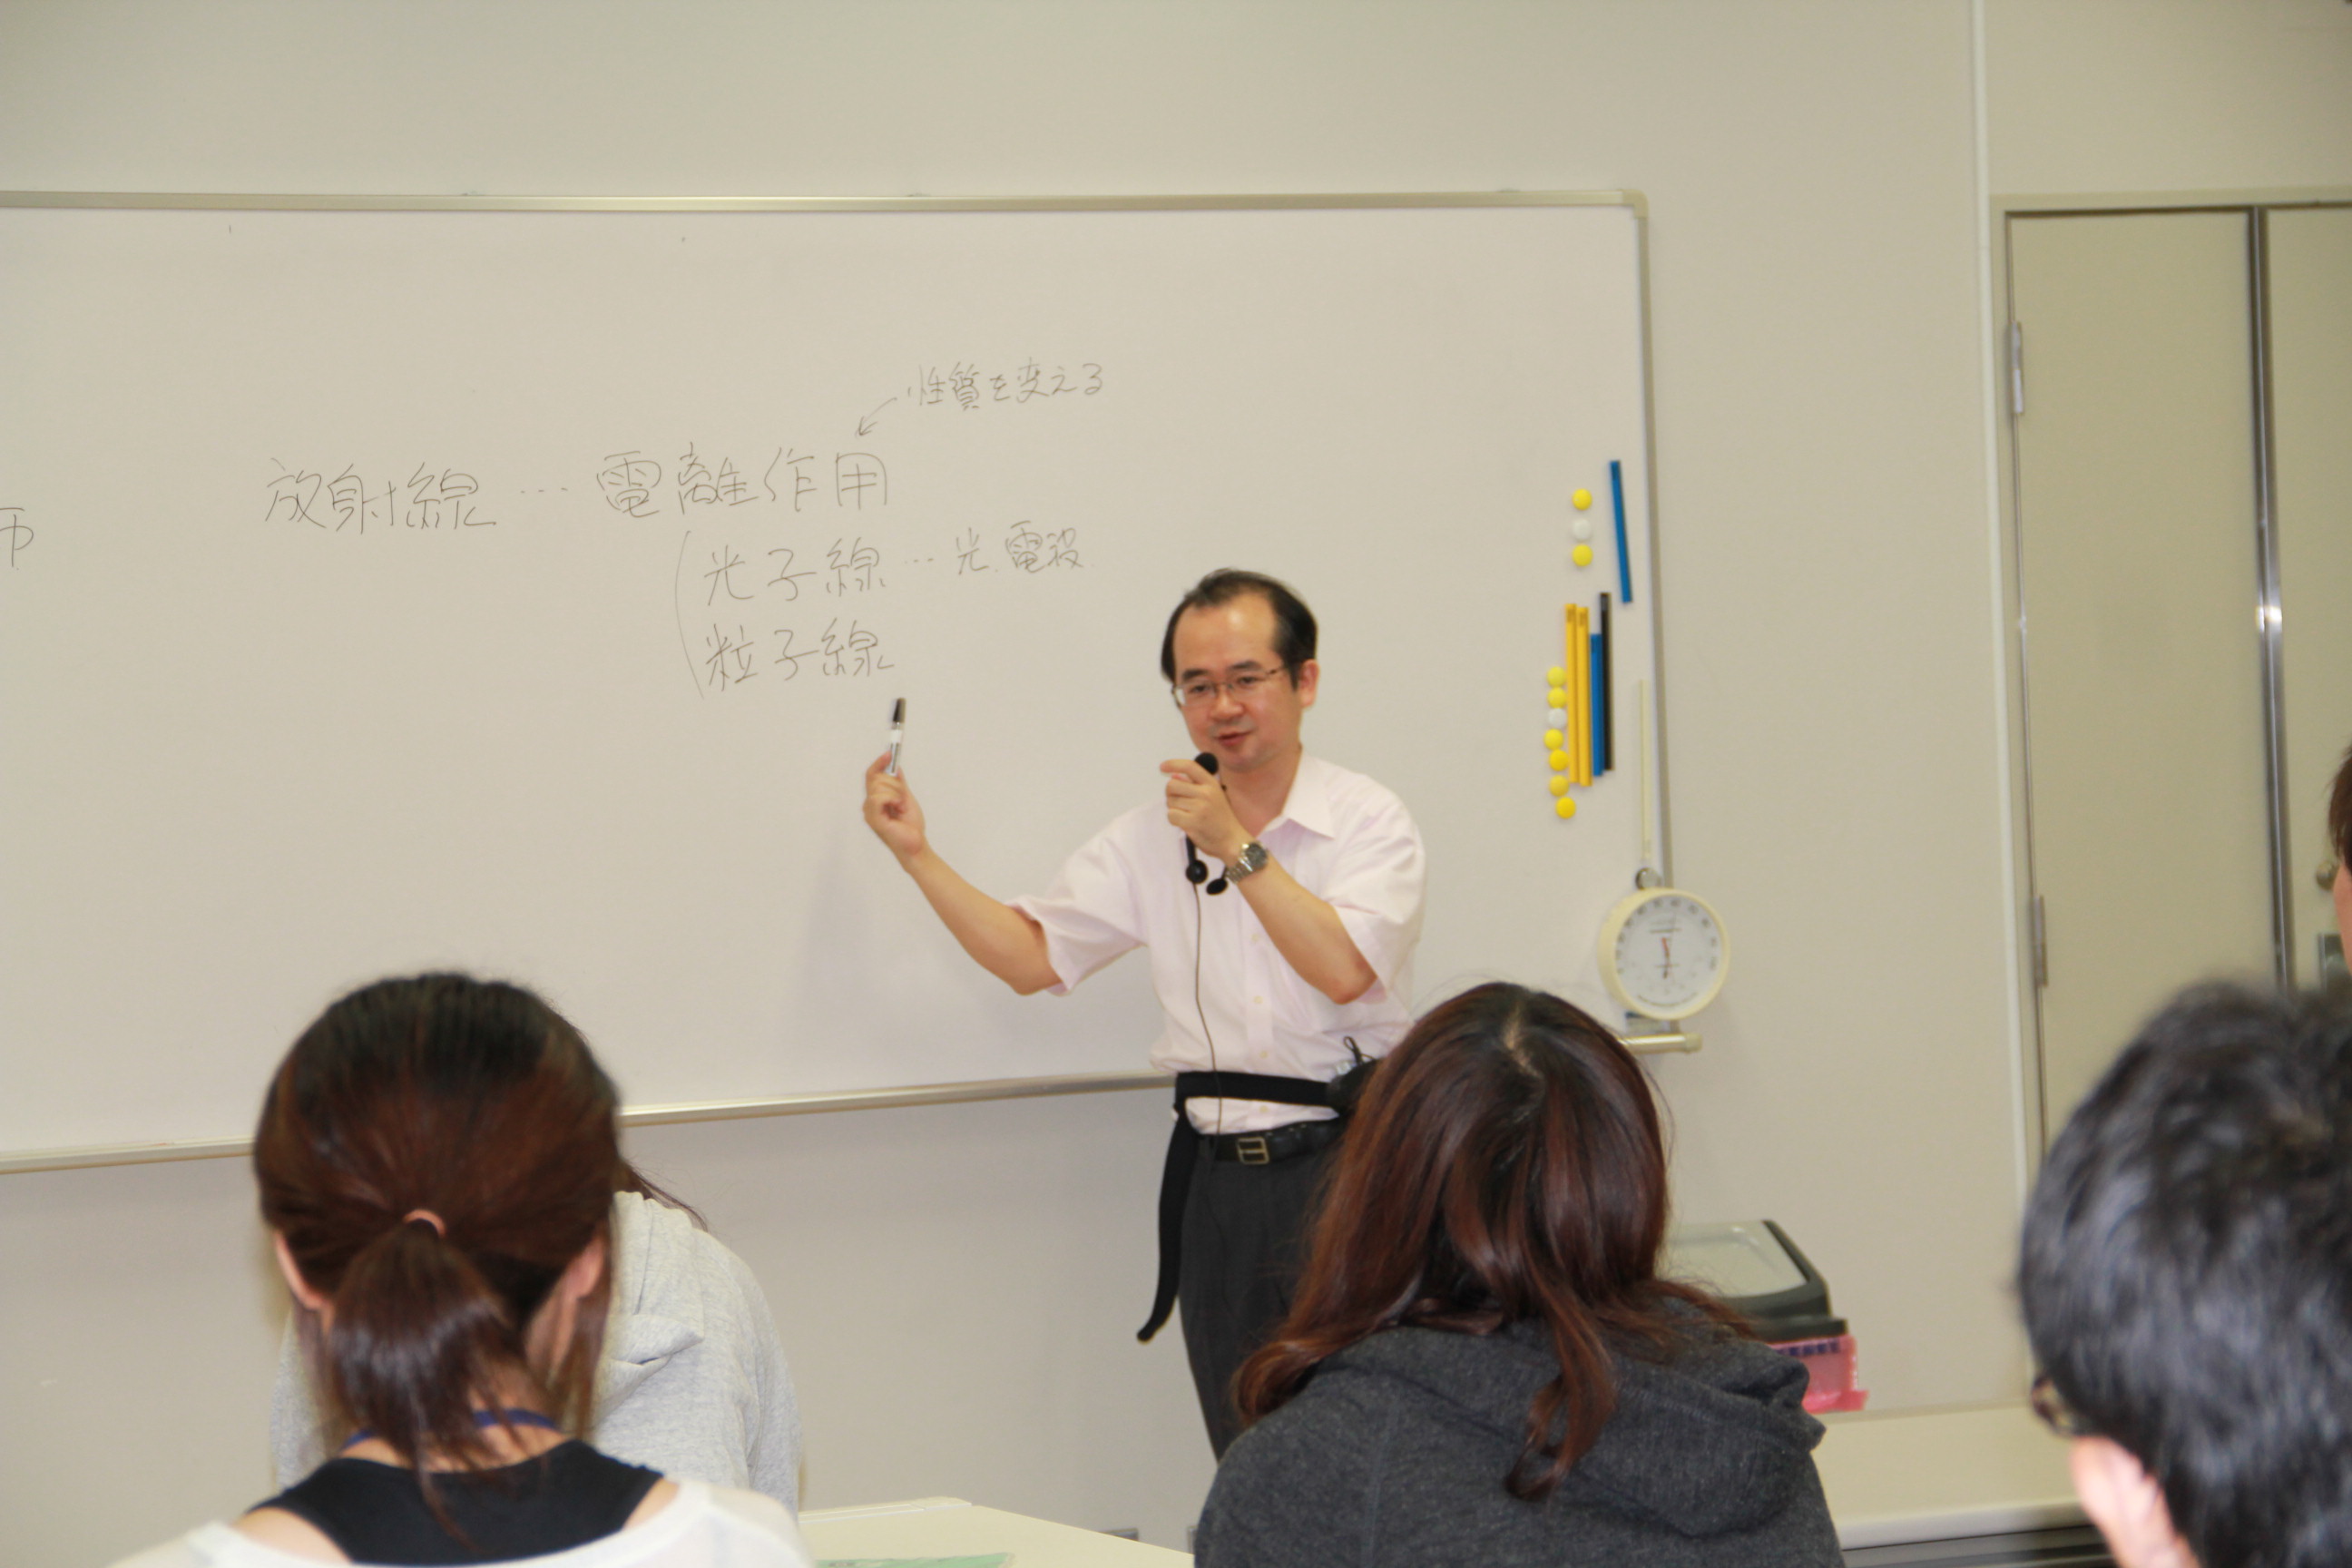 性質を変える
放射線…電離作用
光子線…光.電波.
粒子線